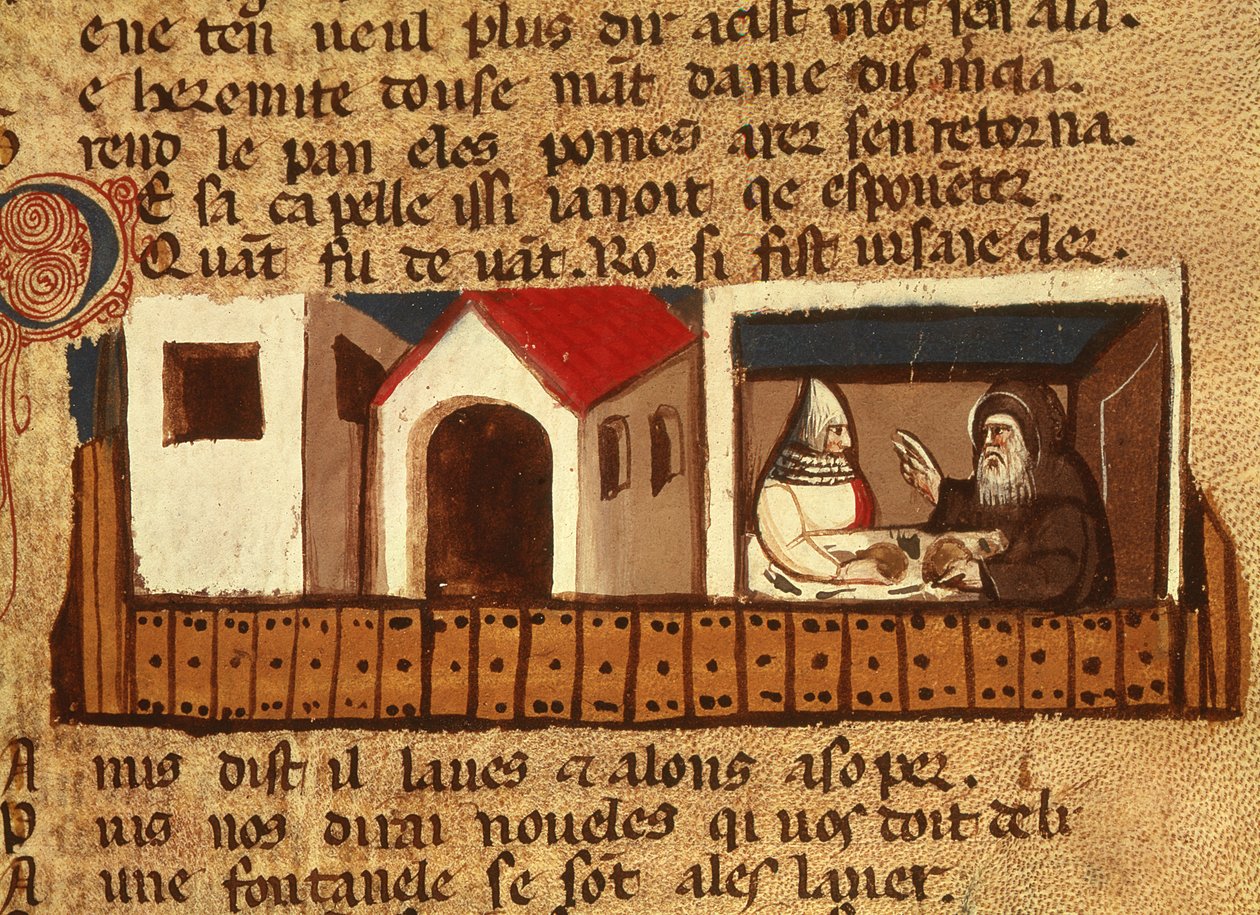 ene ten ueul plus dir acist mot sen ala.
e heremite douse māt dame dis m̄cia.
rend le pan eles pomes arer sen retorna.
DE sa capelle issi ianoit qe espouēter.
Quāt fu de uāt. Ro. si fist uisaie cler.
A mis dist il laues ⁊ alons asoper.
P uis nos dirai noueles qi uos doit
A une fontanele se sōt ales lauer.